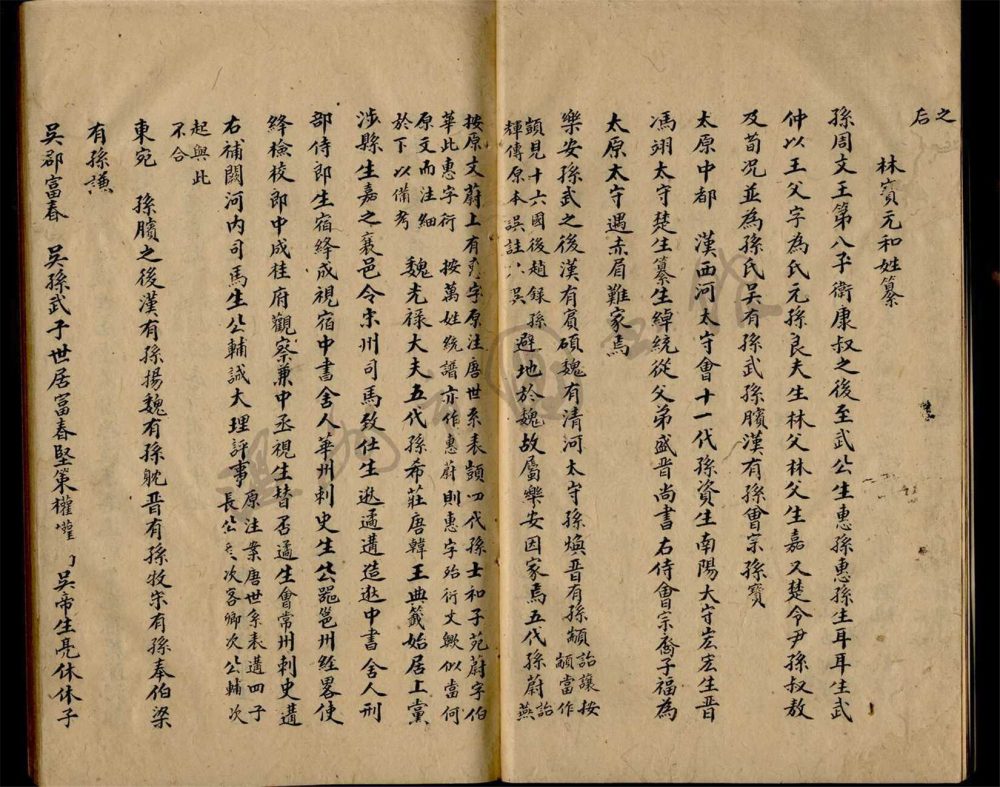 之后
林寳元和姓纂
孫周文王第八子衛康叔之後至武公生惠孫惠孫生耳耳生武
仲以王父字為氏元孫良夫生林父林父生嘉又楚令尹孫叔敖
及荀况並為孫氏吳有孫武孫臏漢有孫會宗孫寳
太原中都 漢西河太守會十一代孫資生南陽大守宏宏生晋
馮翊太守楚生纂生綽統從父弟盛晋尚書右侍會宗裔子福為
太原太守遇赤眉難家焉
樂安孫武之後漢有賓碩魏有清河太守孫煥晋有孫顗
詒讓按顗當作
顗見十六國後趙錄孫
輝傳原本誤註
避地於魏故屬樂安因家焉五代孫蔚
詒燕
按原文蔚上有惠字原注唐世系表顗四代孫士和子苑蔚字伯
華此惠字衍 按萬姓統譜亦作惠蔚則惠字殆衍文歟似當何
原文而注細
於下以備考
魏光禄大夫五代孫希莊唐韓王典籤始居上黨
涉縣生嘉之襄邑令宋州司馬致仕生逖遹遘造逖中書舍人刑
部侍郎生宿絳成視宿中書舍人華州刺史生公器邕州經畧使
絳檢校郎中成桂府觀察兼中丞視生朁否遹生會常州刺史遘
右補闕河内司馬生公輔誠大理評事
原注案唐世系表遘四子
長公 次客卿次公輔次
起與此
不合
東宛 孫臏之後漢有孫揚魏有孫躭晋有孫牧宋有孫奉伯梁
有孫謙
吳郡富春 吳孫武子世居富春堅策權權 吳帝生亮休休子